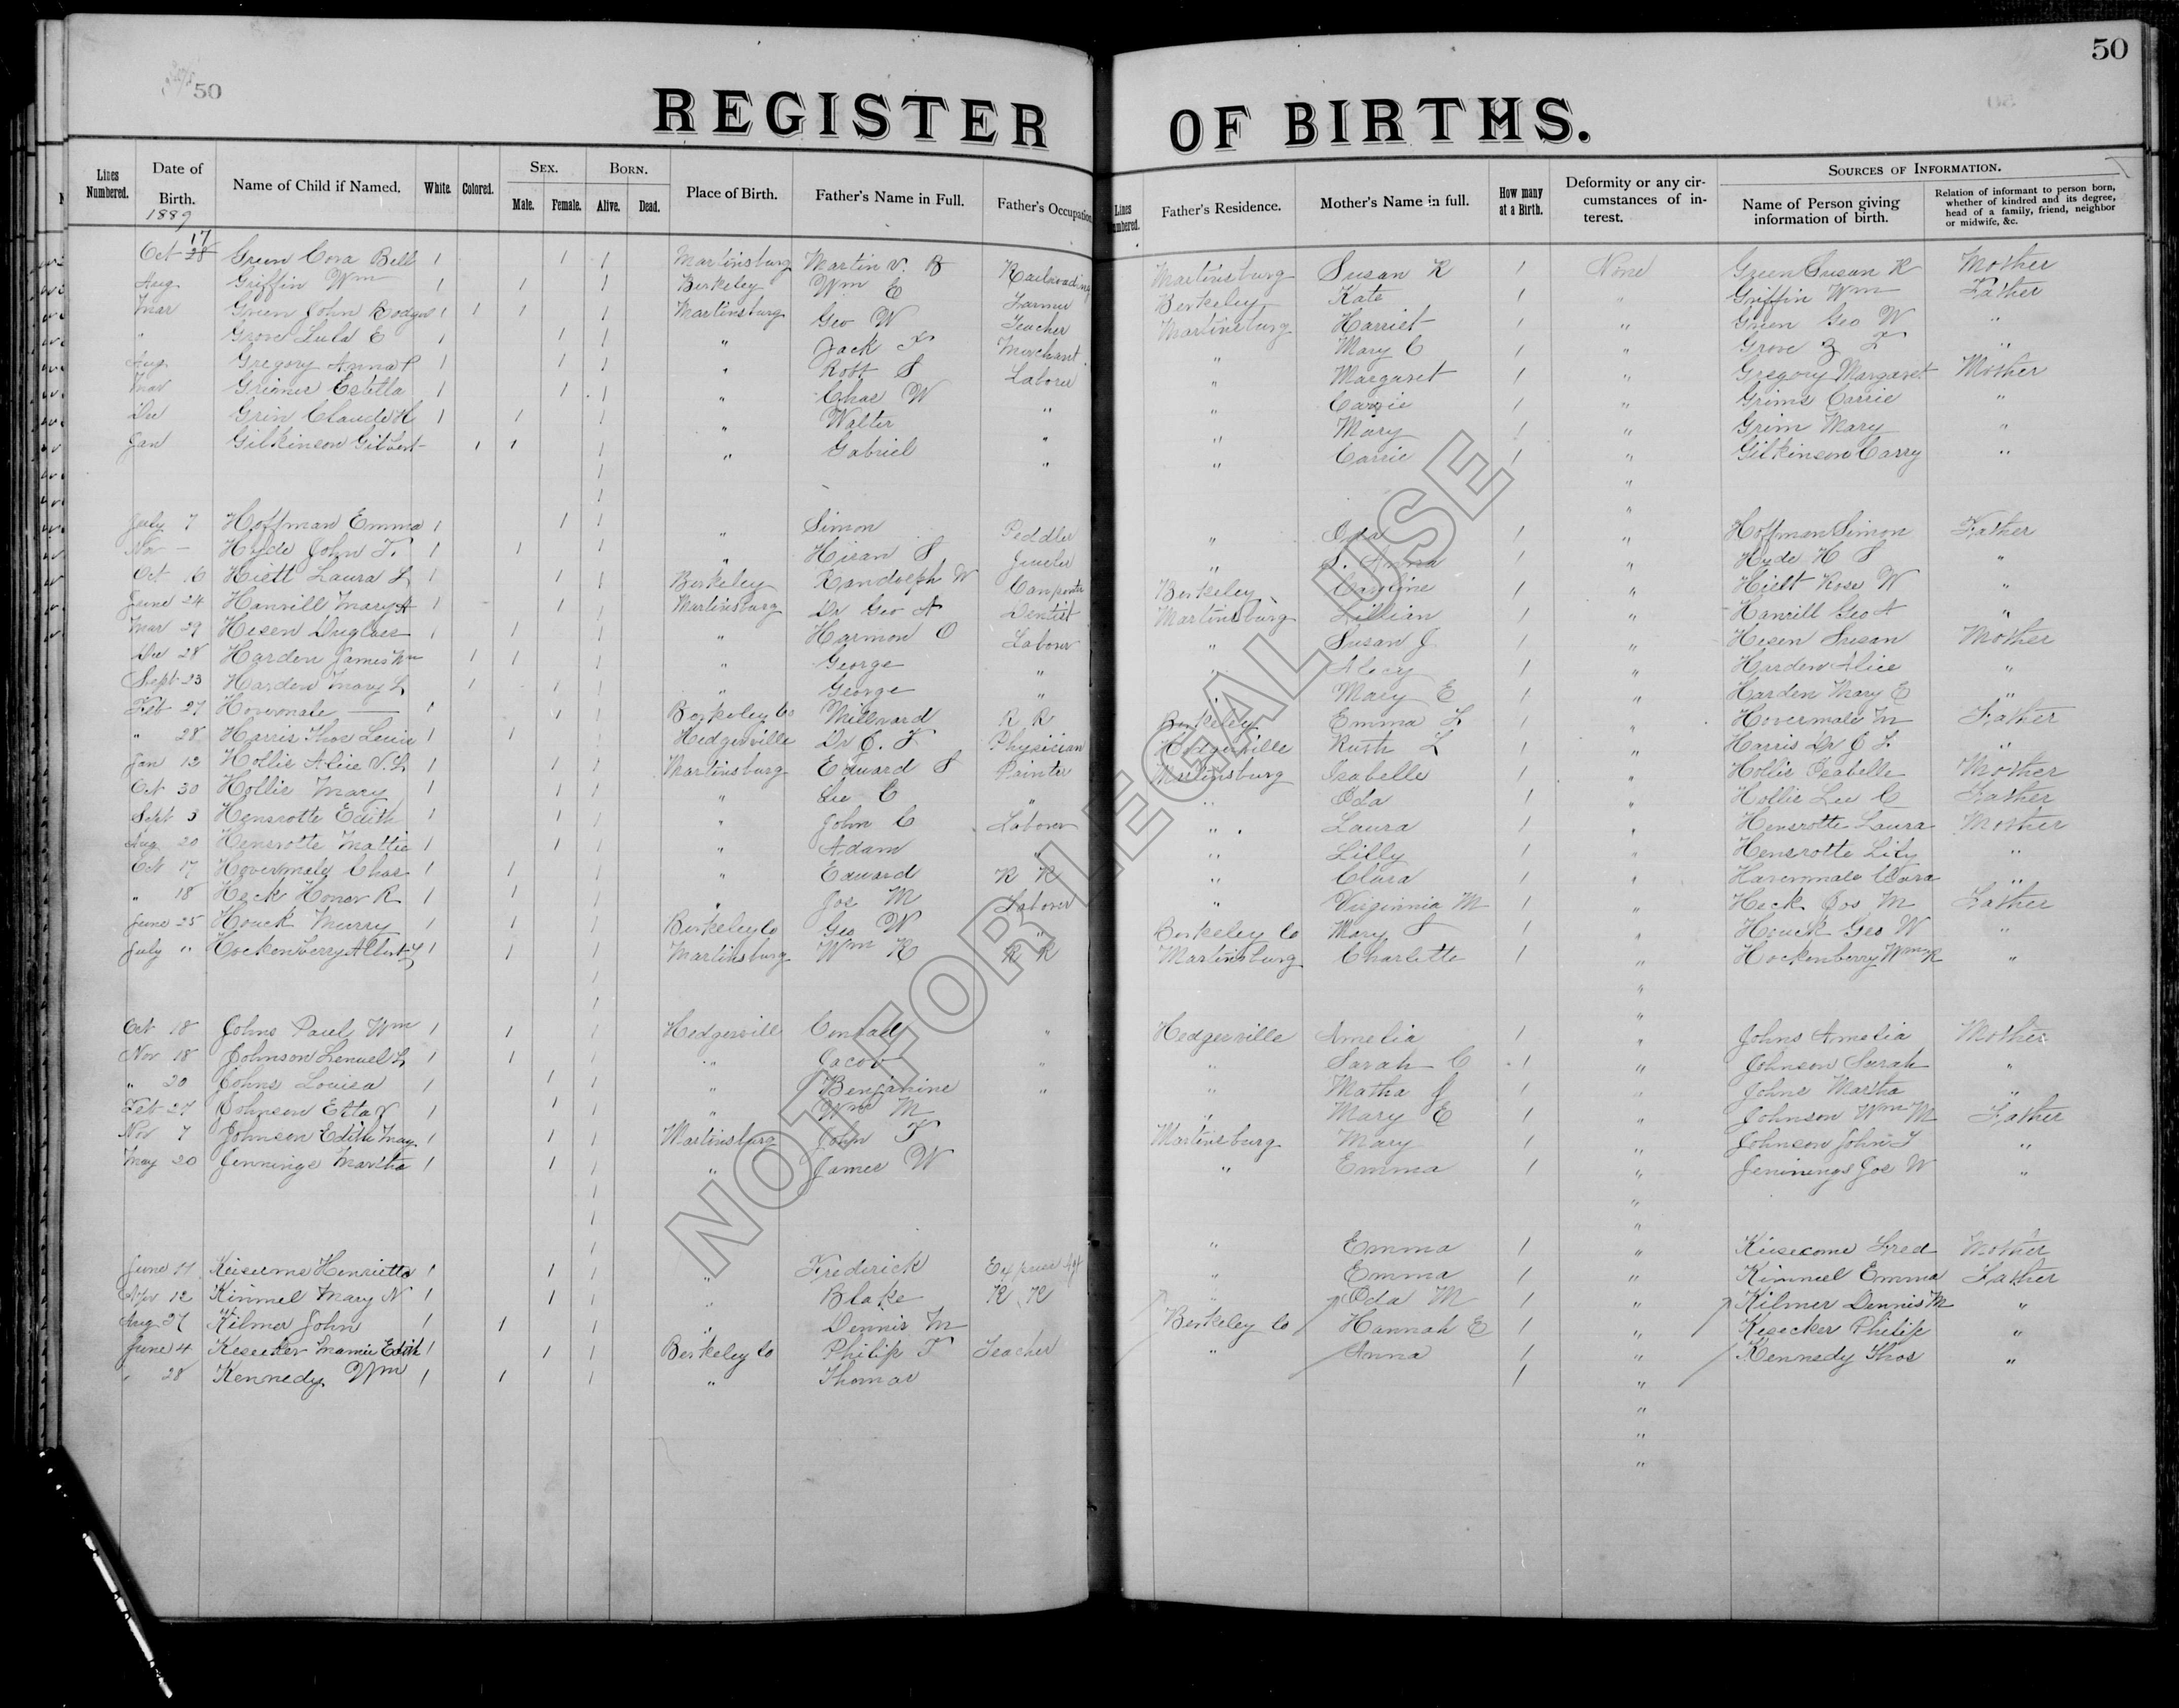 50
50
REGISTER OF BIRTHS.
Lines Numbered. Date of Birth. Name of Child if Named. White. Colored. Sex. Male. Female. Born. Alive. Dead. Place of Birth. Father's Name in Full. Father's Occupation Lines Numbered. Father's Residence. Mother's Name in full. How many at a Birth. Deformity or any circumstances of interest. Sources of Information. Name of Person giving information of birth. Relation of informant to person born, whether of kindred and its degree, head of a family, friend, neighbor or midwife, &c.
1889
Oct 17 28 Green Cora Bell 1 1 1 Martinsburg Martin V. B Railroading Martinsburg Susan R 1 None Green Susan R Mother
Aug Griffin Wm 1 1 1 Berkeley Wm E Farmer Berkeley Kate 1 " Griffin Wm Father
Mar Green John 1 1 1 1 Martinsburg Geo W Teacher Martinsburg Harriet 1 " Green Geo W "
" Grove Lula E 1 1 1 " Jack F Merchant " Mary C 1 " Grove F "
Aug Gregory Anna P 1 1 1 " Robt S Laborer " Margaret 1 " Gregory Margaret Mother
Mar Estella 1 1 1 " Chas W " " Carrie 1 " Grimes Carrie "
Dec Grim Claude H 1 1 1 " Walter " " Mary 1 " Grim Mary "
Jan Gilkinson Gilbert 1 1 1 " Gabriel " " Carrie 1 " Gilkinson Carry "
1 "
1 "
July 7 Hoffman Emma 1 1 1 " Simon Peddler " Oda 1 " Hoffman Simon Father
Nov — Hyde John T. 1 1 1 " Hiran S Jeweler " S. Anna 1 " Hyde H S "
Oct 16 Hiett Laura L 1 1 1 Berkeley Randolph W Carpenter Berkeley Caroline 1 " Hiett W "
June 24 Mary A 1 1 1 Martinsburg Dr Geo A Dentist Martinsburg Lillian 1 " Geo A "
Mar 29 Hesen Duglass 1 1 1 " Harmon O Laborer " Susan J 1 " Hesen Susan Mother
Dec 28 Harden James Wm 1 1 1 " George " " Alecy 1 " Harden Alice "
Sept 23 Harden Mary L 1 1 1 " George " " Mary E 1 " Harden Mary E "
Feb 27 Hovermale — 1 1 1 Berkeley Co Millward R R Berkeley Emma L 1 " Hovermale M Father
" 28 Harris Thos 1 1 1 Hedgesville Dr Physician Hedgesville Ruth L 1 " Harris Dr "
Jan 12 Hollis Alice V. L 1 1 1 Martinsburg Edward S Painter Martinsburg Isabelle 1 " Hollis Isabelle Mother
Oct 30 Hollis Mary 1 1 1 " Lee C " " Oda 1 " Hollis Lee C Father
Sept 3 Hensrotte Edith 1 1 1 " John C Laborer " Laura 1 " Hensrotte Laura Mother
Aug 20 Hensrotte Mattie 1 1 1 " Adam " " Lilly 1 " Hensrotte Lily "
Oct 17 Hovermale Chas 1 1 1 " Edward R R " Clara 1 " Clara "
" 18 Heck Honor R 1 1 1 " Jos M Laborer " Virginnia M 1 " Heck Jos M Father
June 25 Houck Murry 1 1 1 Berkeley Co Geo W " Berkeley Co Mary S 1 " Houck Geo W "
July " Hockenberry Albert 1 1 1 Martinsburg Wm R R R Martinsburg Charlette 1 " Hockenberry Wm R "
1 "
1 "
Oct 18 Johns Paul Wm 1 1 1 Hedgesvill Conrad " Hedgesville Amelia 1 " Johns Amelia Mother
Nov 18 Johnson Lemuel L 1 1 1 " Jacob " " Sarah C 1 " Johnson Sarah "
" 20 Johns Louisa 1 1 1 " Benjamine " " Matha J 1 " Johns Martha "
Feb 27 Johnson Etta V 1 1 1 " Wm M " Mary E 1 " Johnson Wm M Father
Nov 7 Johnson Edith May 1 1 1 Martinsburg John T Martinsburg Mary 1 " Johnson John T "
May 20 Jennings Martha 1 1 1 " James W " Emma 1 " Jeninings Jos W "
1 "
1 "
1 " Emma 1 " Kiesecome Fred Mother
June 11 Henrietta 1 1 1 " Frederick Express Agt " Emma 1 " Kimmel Emma Father
Nov 12 Kimmel Mary N 1 1 1 " Blake R R " Oda M 1 " Kilmer Dennis M "
Aug 27 Kilmer John 1 1 1 " Dennis M Berkeley Co Hannah E 1 " Kesecker Philip "
June 4 Kesecker Mamie Edith 1 1 1 Berkeley Co Philip T Teacher " Anna 1 " Kennedy Thos "
" 28 Kennedy Wm 1 1 1 " Thomas 1 "
"
"
"
NOT FOR LEGAL USE